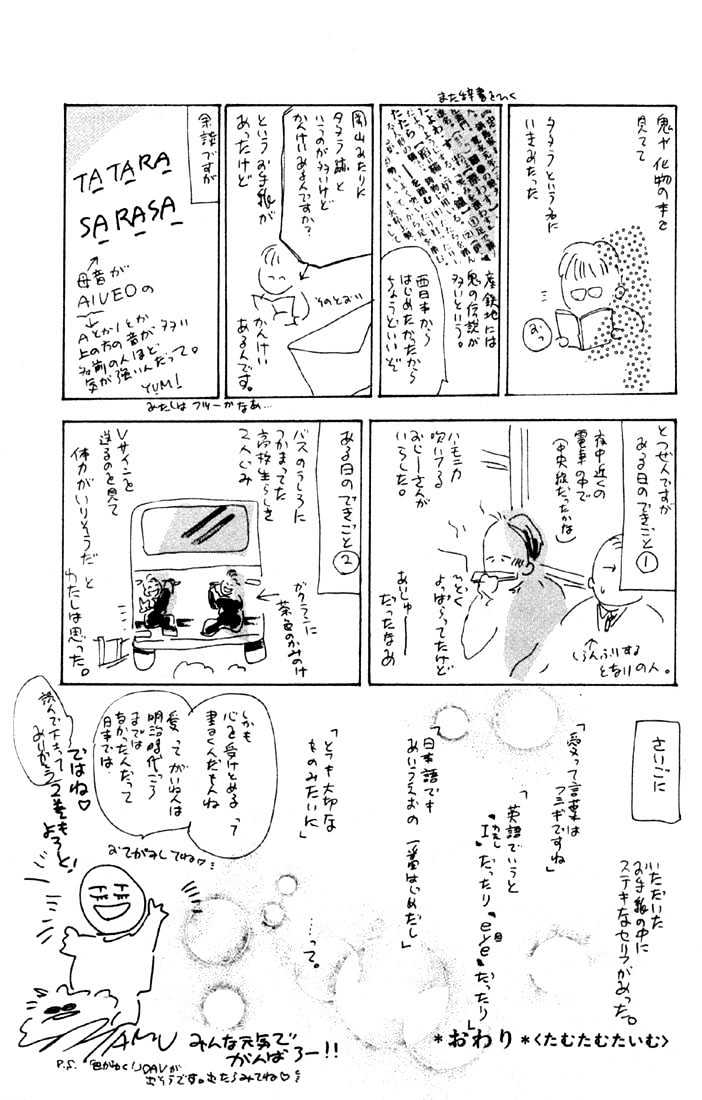 鬼や化物の本を
見てて
タタラという名に
いきあたった
おっ
また辞書をひく
産鉄地には
鬼の伝説が
多いという。
西日本から
はじめたかったから
ちょうどいいぞ
岡山あたりに
タタラ跡と
いうのが多いけど
かんけいあるんですか?
というお手紙が
あったけど
そのとおり
かんけい
あるんです。
余談ですが
TATARA
SARASA
母音が
AIUEOの
AとかIとか
上の方の音が多い
名前の人ほど
気が強いんだって。
YUMI
あたしはフツーかなあ…
とつぜんですが
ある日のできごと①
夜中近くの
電車の中で
(中央線だったかな)
ハモニカ
吹いてる
おじーさんが
いらした。
よっぱらってたけど
あいじゅー
だったなあ
しらんふりする
となりの人。
ある日のできごと②
バスのうしろに
つかまってた
高校生らしき
2人組
ガクランに
茶色のかみのけ
Vサインを
送るのを見て
体力がいりそうだ と
わたしは思った。
さいごに
いただいた
お手紙の中に
ステキなセリフがあった。
「愛って言葉は
フシギですね」
「英語でいうと
"I"だったり"eye"だったり」
「日本語でも
あいうえおの 一番はじめだし」
「とても大切な
ものみたいに」
……って。
しかも
心を受けとめる って
書くんだもんね
愛 って がいねんは
明治時代ごろ
までは
なかったんだって
日本では。
おてがみしてね♡
ではね♡
2巻も
よろしく!
読んで下さって
ありがとう
TAMU
みんな元気で
がんばろー!!
*おわり*<たむたむたいむ>